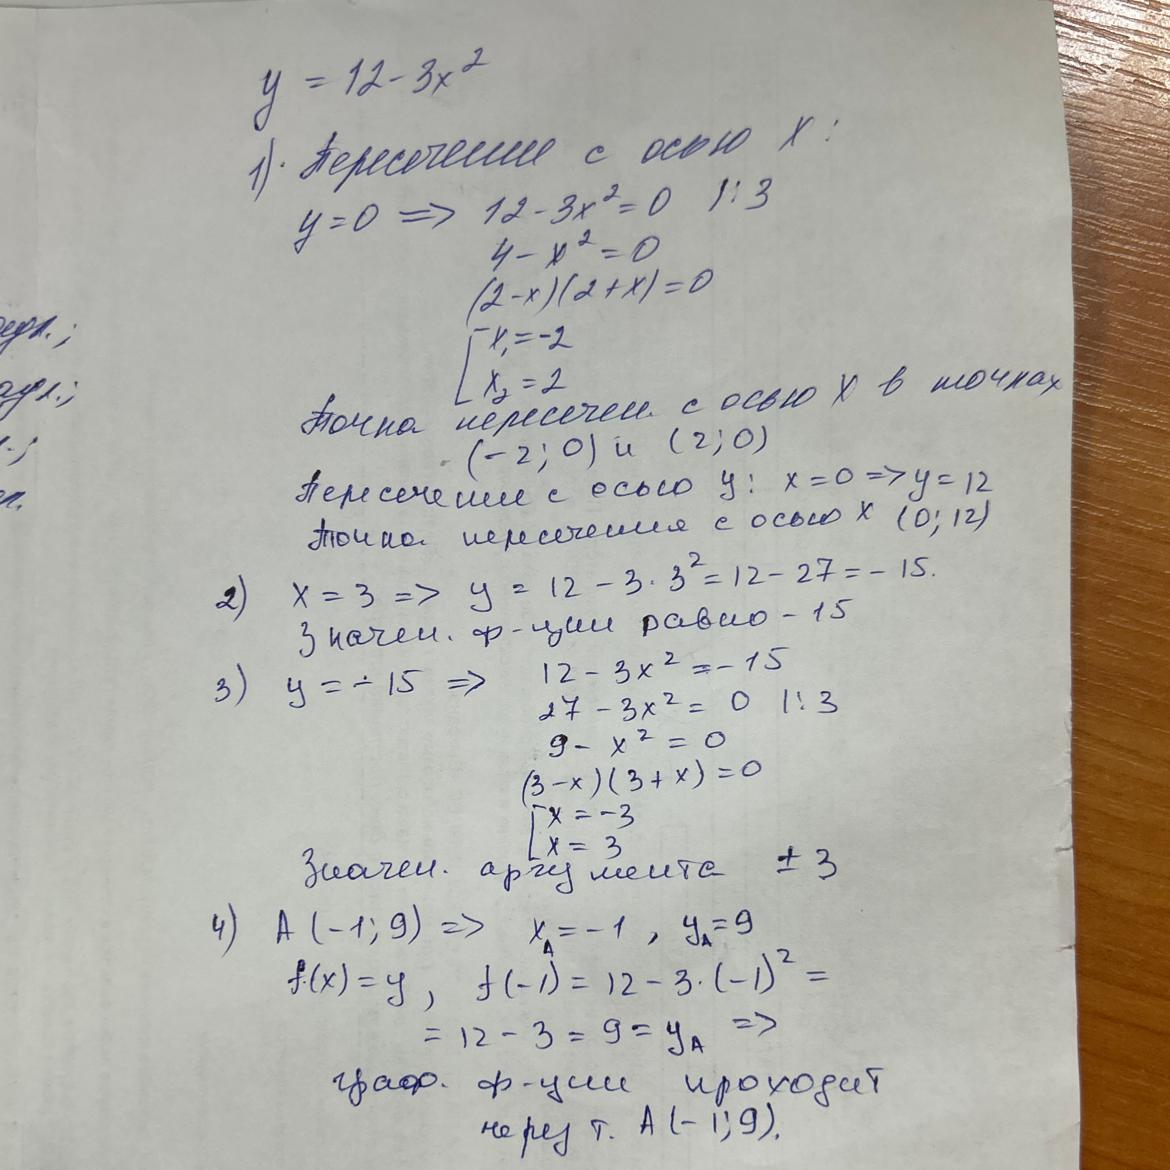 y = 12 - 3x²
1). Пересечение с осью x :
y=0 => 12-3x²=0 |:3
4 - x² = 0
(2-x)(2+x)=0
[ x₁=-2
x₂=2
Точка пересечен. с осью x в точках
(-2;0) и (2;0)
Пересечение с осью y: x=0 => y=12
Точка пересечения с осью x (0;12)
2) x = 3 => y = 12 - 3·3² = 12-27 = -15.
Значен. ф-ции равно -15
3) y = -15 => 12 - 3x² = -15
27 - 3x² = 0 |:3
9 - x² = 0
(3-x)(3+x)=0
[ x = -3
x = 3
Значен. аргумента ±3
4) A (-1;9) => x_A = -1 , y_A = 9
f(x) = y , f(-1) = 12 - 3·(-1)² =
= 12 - 3 = 9 = y_A =>
граф. ф-ции проходит
через т. A (-1;9).